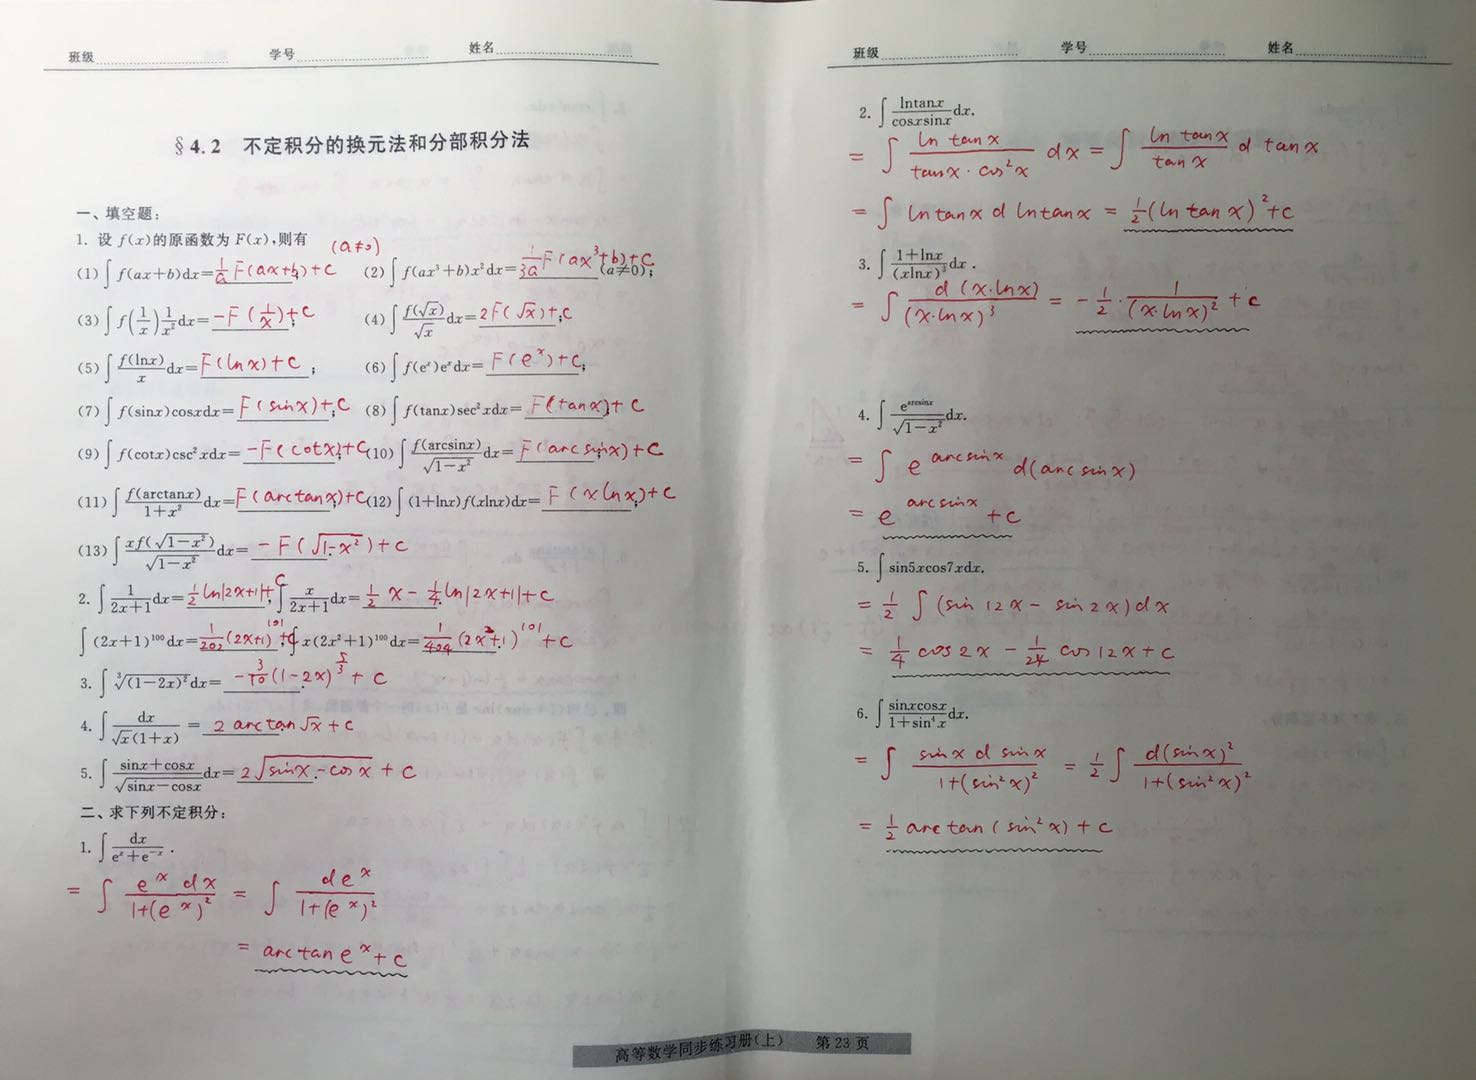 班级 学号 姓名
§4.2 不定积分的换元法和分部积分法
一、填空题:
1. 设 f(x)的原函数为 F(x),则有 (a≠0)
(1) ∫f(ax+b)dx=1/a F(ax+b)+C; (2) ∫f(ax³+b)x²dx=1/3a F(ax³+b)+C (a≠0);
(3) ∫f(1/x)1/x² dx=-F(1/x)+C; (4) ∫f(√x)/√x dx=2F(√x)+C;
(5) ∫f(lnx)/x dx=F(lnx)+C; (6) ∫f(eˣ)eˣdx=F(eˣ)+C;
(7) ∫f(sinx)cosxdx=F(sinx)+C; (8) ∫f(tanx)sec²xdx=F(tanx)+C;
(9) ∫f(cotx)csc²xdx=-F(cotx)+C; (10) ∫f(arcsinx)/√(1-x²) dx=F(arcsinx)+C;
(11) ∫f(arctanx)/(1+x²) dx=F(arctanx)+C; (12) ∫(1+lnx)f(xlnx)dx=F(xlnx)+C;
(13) ∫xf(√(1-x²))/√(1-x²) dx=-F(√(1-x²))+C.
2. ∫1/(2x+1) dx=1/2 ln|2x+1|+C, ∫x/(2x+1) dx=1/2 x-1/4 ln|2x+1|+C
∫(2x+1)¹⁰⁰dx=1/202 (2x+1)¹⁰¹+C, ∫x(2x²+1)¹⁰⁰dx=1/404 (2x²+1)¹⁰¹+C.
3. ∫∛(1-2x)² dx=-3/10 (1-2x)^(5/3)+C.
4. ∫dx/(√x(1+x)) =2arctan√x+C.
5. ∫(sinx+cosx)/√(sinx-cosx) dx=2√(sinx-cosx)+C.
二、求下列不定积分:
1. ∫dx/(eˣ+e⁻ˣ).
=∫eˣdx/(1+(eˣ)²) =∫deˣ/(1+(eˣ)²)
=arctaneˣ+C
班级 学号 姓名
2. ∫lntanx/(cosxsinx) dx.
=∫ln tanx/(tanx·cos²x) dx=∫ln tanx/tanx d tanx
=∫lntanx d lntanx=1/2(ln tanx)²+C
3. ∫(1+lnx)/(xlnx)³ dx.
=∫d(x·lnx)/(x·lnx)³ =-1/2·1/(x·lnx)²+C
4. ∫e^(arcsinx)/√(1-x²) dx.
=∫e^(arcsinx) d(arcsinx)
=e^(arcsinx)+C
5. ∫sin5xcos7xdx.
=1/2∫(sin12x-sin2x)dx
=1/4 cos2x-1/24 cos12x+C
6. ∫sinxcosx/(1+sin⁴x) dx.
=∫sinx d sinx/(1+(sin²x)²) =1/2∫d(sinx)²/(1+(sin²x)²)
=1/2 arctan(sin²x)+C
高等数学同步练习册(上) 第23页